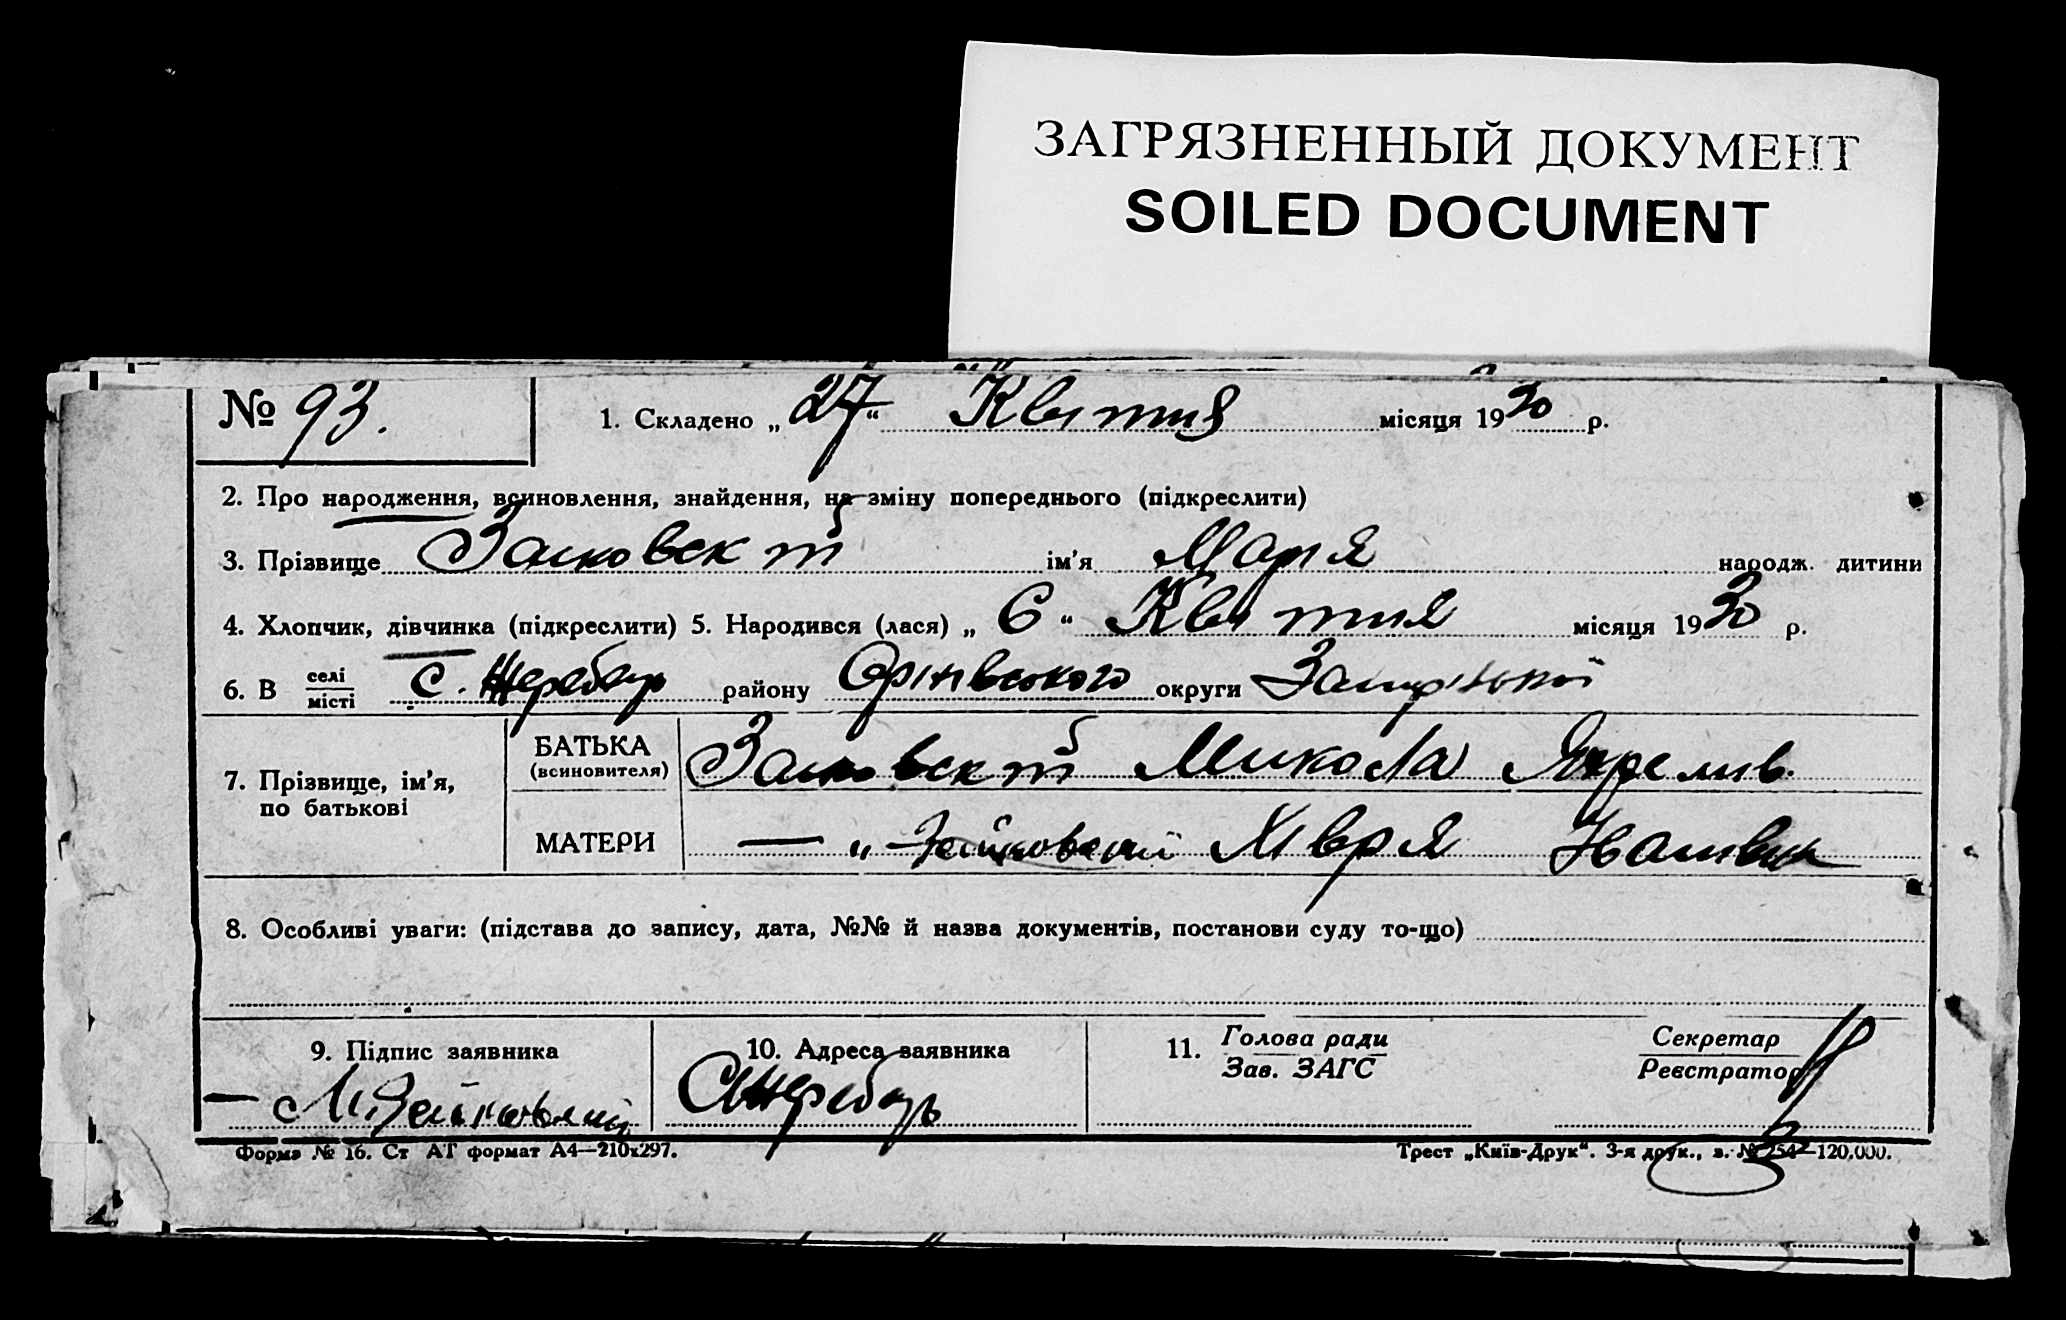 ЗАГРЯЗНЕННЫЙ ДОКУМЕНТ
SOILED DOCUMENT
№ 93. 1. Складено „27“ Квітня місяця 1930 р.
2. Про народження, всиновлення, знайдення, на зміну попереднього (підкреслити)
3. Прізвище ім'я Марія народж. дитини
4. Хлопчик, дівчинка (підкреслити) 5. Народився (лася) „6“ Квітня місяця 1930 р.
6. В селі місті с. Жеребец району округи
7. Прізвище, ім'я, по батькові
БАТЬКА (всиновителя) Микола
МАТЕРИ — „ Хівря
8. Особливі уваги: (підстава до запису, дата, №№ й назва документів, постанови суду то-що)
9. Підпис заявника 10. Адреса заявника 11. Голова ради Зав. ЗАГС Секретар Реєстратор
Форма № 16. Ст АТ формат А4—210x297. Трест „Київ-Друк“. 3-я друк., з. № 254—120,000.